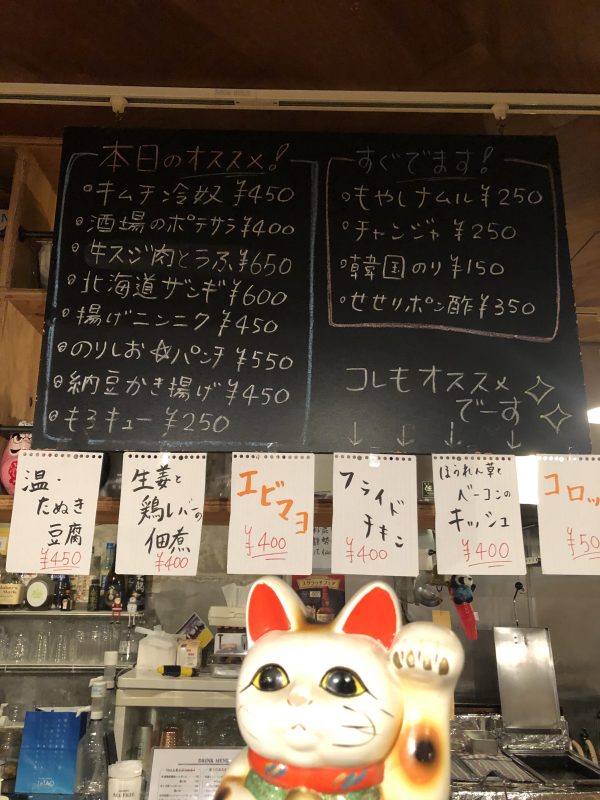 本日のオススメ!
キムチ冷奴 ¥450
酒場のポテサラ ¥400
牛スジ肉とうふ ¥650
北海道ザンギ ¥600
揚げニンニク ¥450
のりしお☆パンチ ¥550
納豆かき揚げ ¥450
もろキュー ¥250
すぐでます!
もやしナムル ¥250
チャンジャ ¥250
韓国のり ¥150
せせりポン酢 ¥350
コレもオススメ
でーす
温・
たぬき
豆腐
¥450
生姜と
鶏レバーの
佃煮
¥400
エビマヨ
¥400
フライド
チキン
¥400
ほうれん草と
ベーコンの
キッシュ
¥400
コロッ
¥50
DRINK MENU